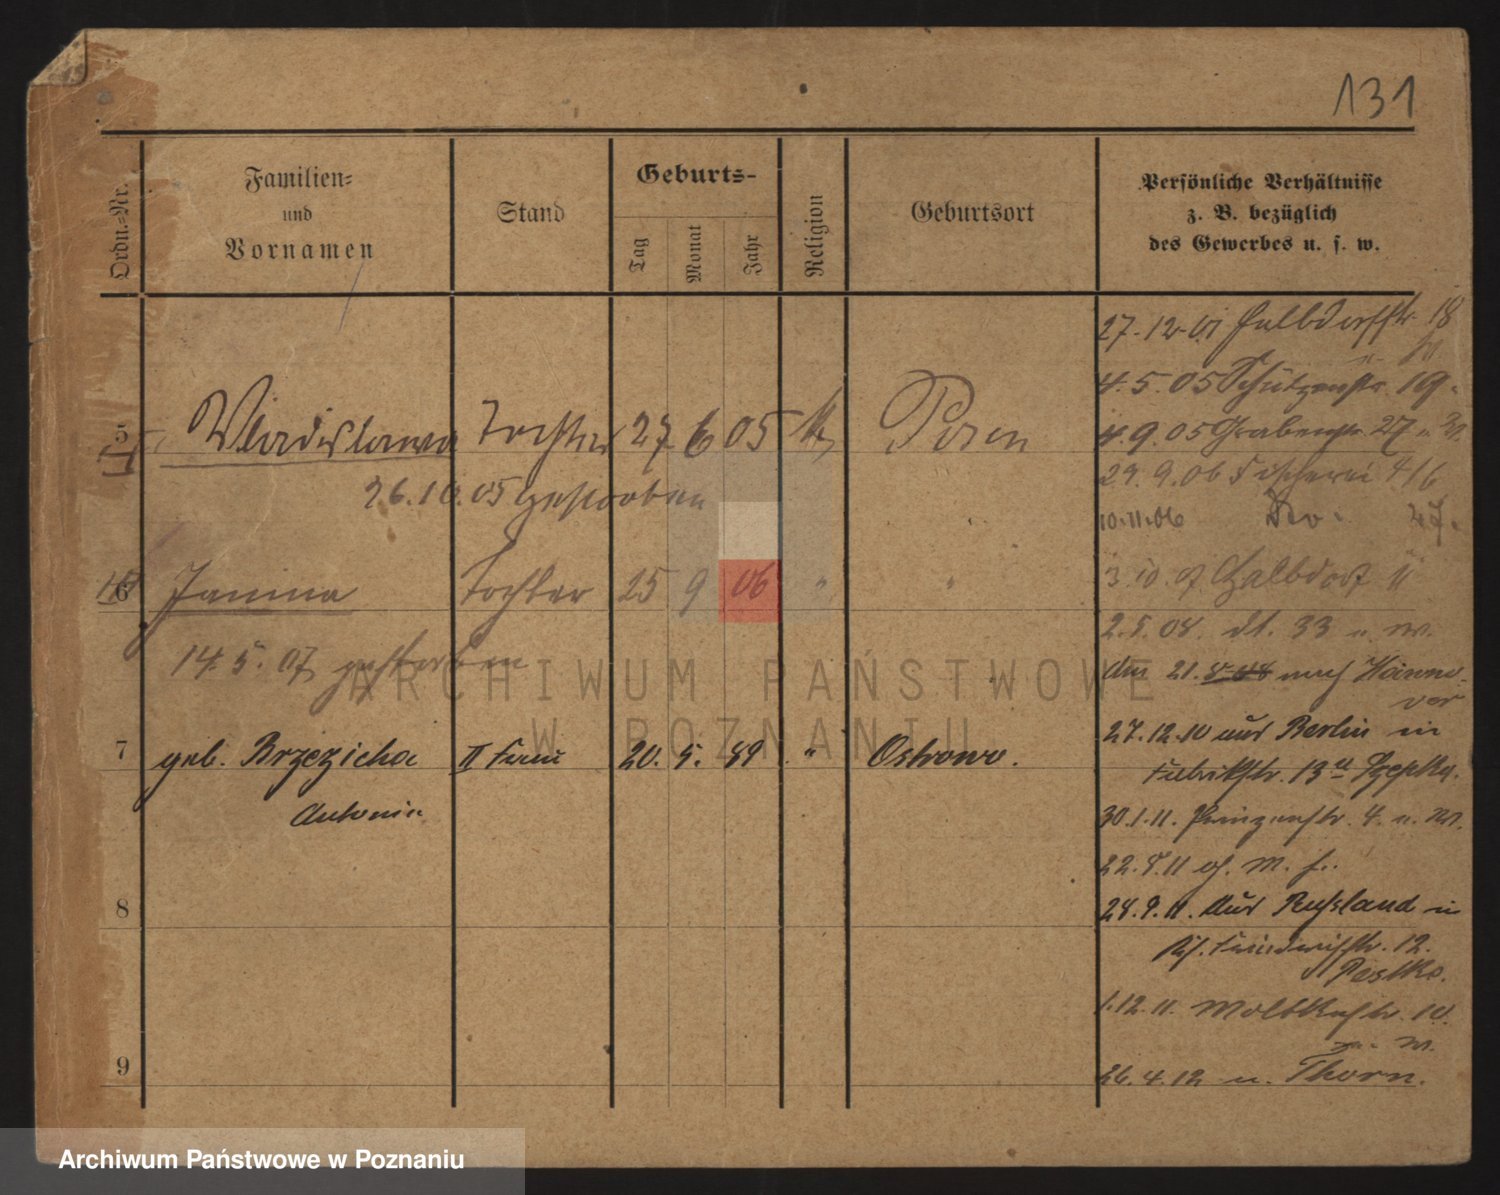 131
Ordn.-Nr.
Familien-
und
Vornamen
Stand
Geburts-
Tag
Monat
Jahr
Religion
Geburtsort
Persönliche Verhältnisse
z. B. bezüglich
des Gewerbes u. s. w.
5
Wladislawa Tochter 27 6 05 K Posen
26.10.05 gestorben
6 Janina Tochter 25 9 06 " "
14.5.07 gestorben
7 geb. Brzezicha II Frau 20. 5. 89 " Ostrowo.
Antonie
8
9
27.12.01 Halbdorfstr 18
4.5.05 Schützenstr. 19.
4.9.05 Grabenstr. 27 u. W.
29.9.06 Fischerei 4/6
10.11.06 Do. 27.
3.10.07 Halbdorf 11
2.5.08. dt. 33 u. W.
Am 21.8.08 nach Hanno-
ver
27.12.10 aus Berlin in
Fabrikstr. 13
30.1.11. Prinzenstr. 4. u. W.
22.5.11
28.9.11. Aus Russland in
Friedrichstr. 12.
1.12.11. Moltkestr. 10.
u. W.
26.4.12 n. Thorn.
ARCHIWUM PAŃSTWOWE
W POZNANIU
Archiwum Państwowe w Poznaniu